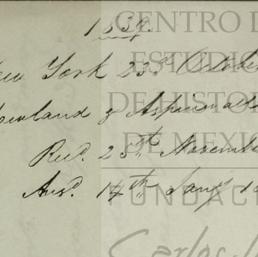 1839.
New York 23d October
Howland & Aspinwall
Recd. 25th November
Ansd. 14th Jany 18
CENTRO D
ESTUDIOS
DE HISTOR
DE MEXIC
FUNDACI
Carlos